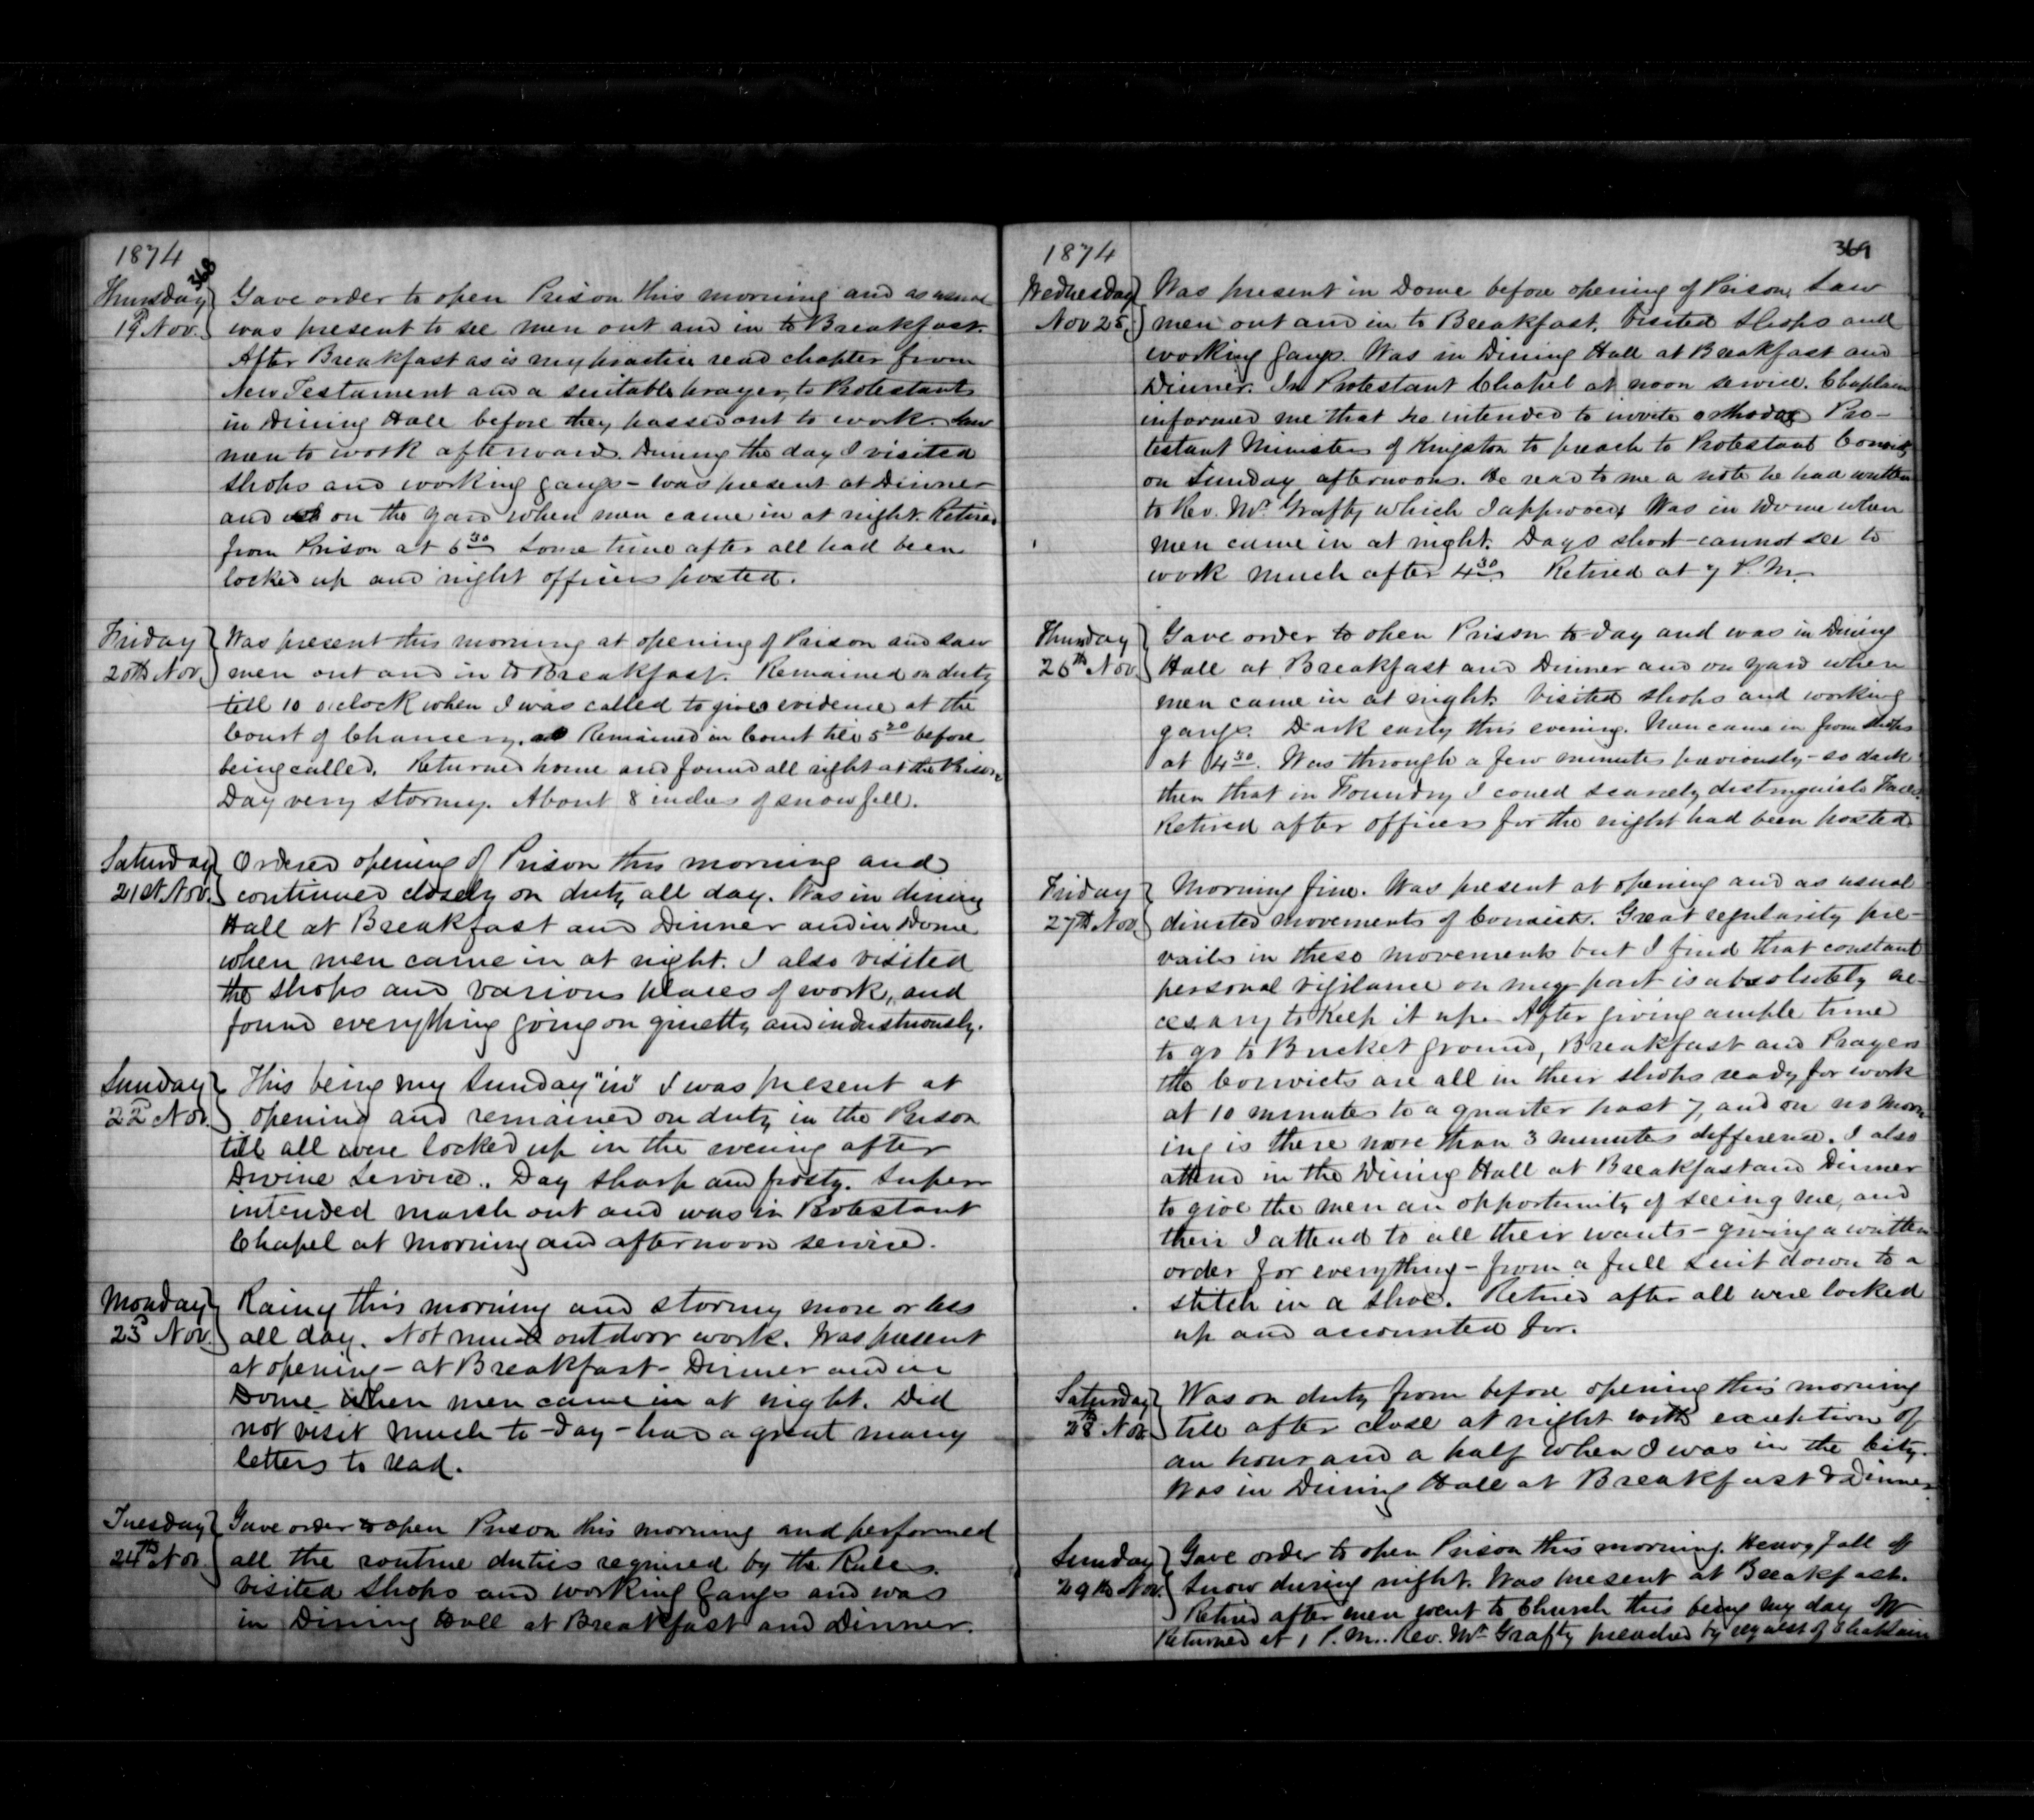 1874
368
Thursday
19 Nov.
Gave order to open Prison this morning and as usual
was present to see men out and in to Breakfast.
After Breakfast as is my practice read chapter from
New Testament and a suitable prayer, to Protestants
in Dining Hall before they passed out to work. Saw
men to work afterward. During the day I visited
shops and working gangs - was present at Dinner
and on the yard when men came in at night. Retired
from Prison at 6 30 some time after all had been
locked up and night officers posted.
Friday
20th Nov.
Was present this morning at opening of Prison and saw
men out and in to Breakfast. Remained on duty
till 10 oclock when I was called to give evidence at the
Court of Chancery. Remained in Court till 5 20 before
being called. Returned home and found all right at the Prison
Day very stormy. About 8 inches of snow fell.
Saturday
21st Nov.
Ordered opening of Prison this morning and
continued closely on duty all day. Was in dining
Hall at Breakfast and Dinner and in Dome
when men came in at night. I also visited
the shops and various places of work, and
found everything going on quietly and industriously.
Sunday
22d Nov.
This being my Sunday "in" I was present at
opening and remained on duty in the Prison
till all were locked up in the evening after
Divine Service. Day sharp and frosty. Super
intended march out and was in Protestant
Chapel at morning and afternoon service.
Monday
23d Nov.
Rainy this morning and stormy more or less
all day. Not much outdoor work. Was present
at opening - at Breakfast - Dinner and in
Dome when men came in at night. Did
not visit much to-day - had a great many
letters to read.
Tuesday
24th Nov
Gave order to open Prison this morning and performed
all the routine duties required by the Rules.
visited shops and working gangs and was
in Dining Hall at Breakfast and Dinner.
1874
369
Wednesday
Nov 25.
Was present in Dome before opening of Prison, Saw
men out and in to Breakfast. Visited shops and
working gangs. Was in Dining Hall at Breakfast and
Dinner. In Protestant Chapel at noon service. Chaplain
informed me that he intended to invite orthodox Pro-
testant Ministers of Kingston to preach to Protestant Convicts
on Sunday afternoons. He read to me a note he had written
to Rev. Mr. Grafty which I approved. Was in Dome when
men came in at night. Days short - cannot see to
work much after 4 30. Retired at 7 P.M.
Thursday
26th Nov.
Gave order to open Prison to-day and was in Dining
Hall at Breakfast and Dinner and on yard when
men came in at night. Visited shops and working
gangs. Dark early this evening. Men came in from shops
at 4 30. Was through a few minutes previously - so dark
then that in Foundry I could scarcely distinguish Faces.
Retired after officers for the night had been posted
Friday
27th Nov.
Morning fine. Was present at opening and as usual
directed movements of Convicts. Great regularity pre-
vails in these movements but I find that constant
personal vigilance on my part is absolutely ne-
cesary to keep it up. After giving ample time
to go to Bucket ground, Breakfast and Prayers
the Convicts are all in their shops ready for work
at 10 minutes to a quarter past 7, and on no morn
ing is there more than 3 minutes difference. I also
attend in the Dining Hall at Breakfast and Dinner
to give the men an opportunity of seeing me, and
then I attend to all their wants - giving a written
order for everything - from a full suit down to a
stitch in a shoe. Retired after all were locked
up and accounted for.
Saturday
28th Nov.
Was on duty from before opening this morning
till after close at night with exception of
an hour and a half when I was in the City.
Was in Dining Hall at Breakfast & Dinner
Sunday
29th Nov.
Gave order to open Prison this morning. Heavy fall of
snow during night. Was present at Breakfast.
Retired after men went to Church this being my day off
Returned at 1 P.M. Rev. Mr Grafty preached by request of Chaplain